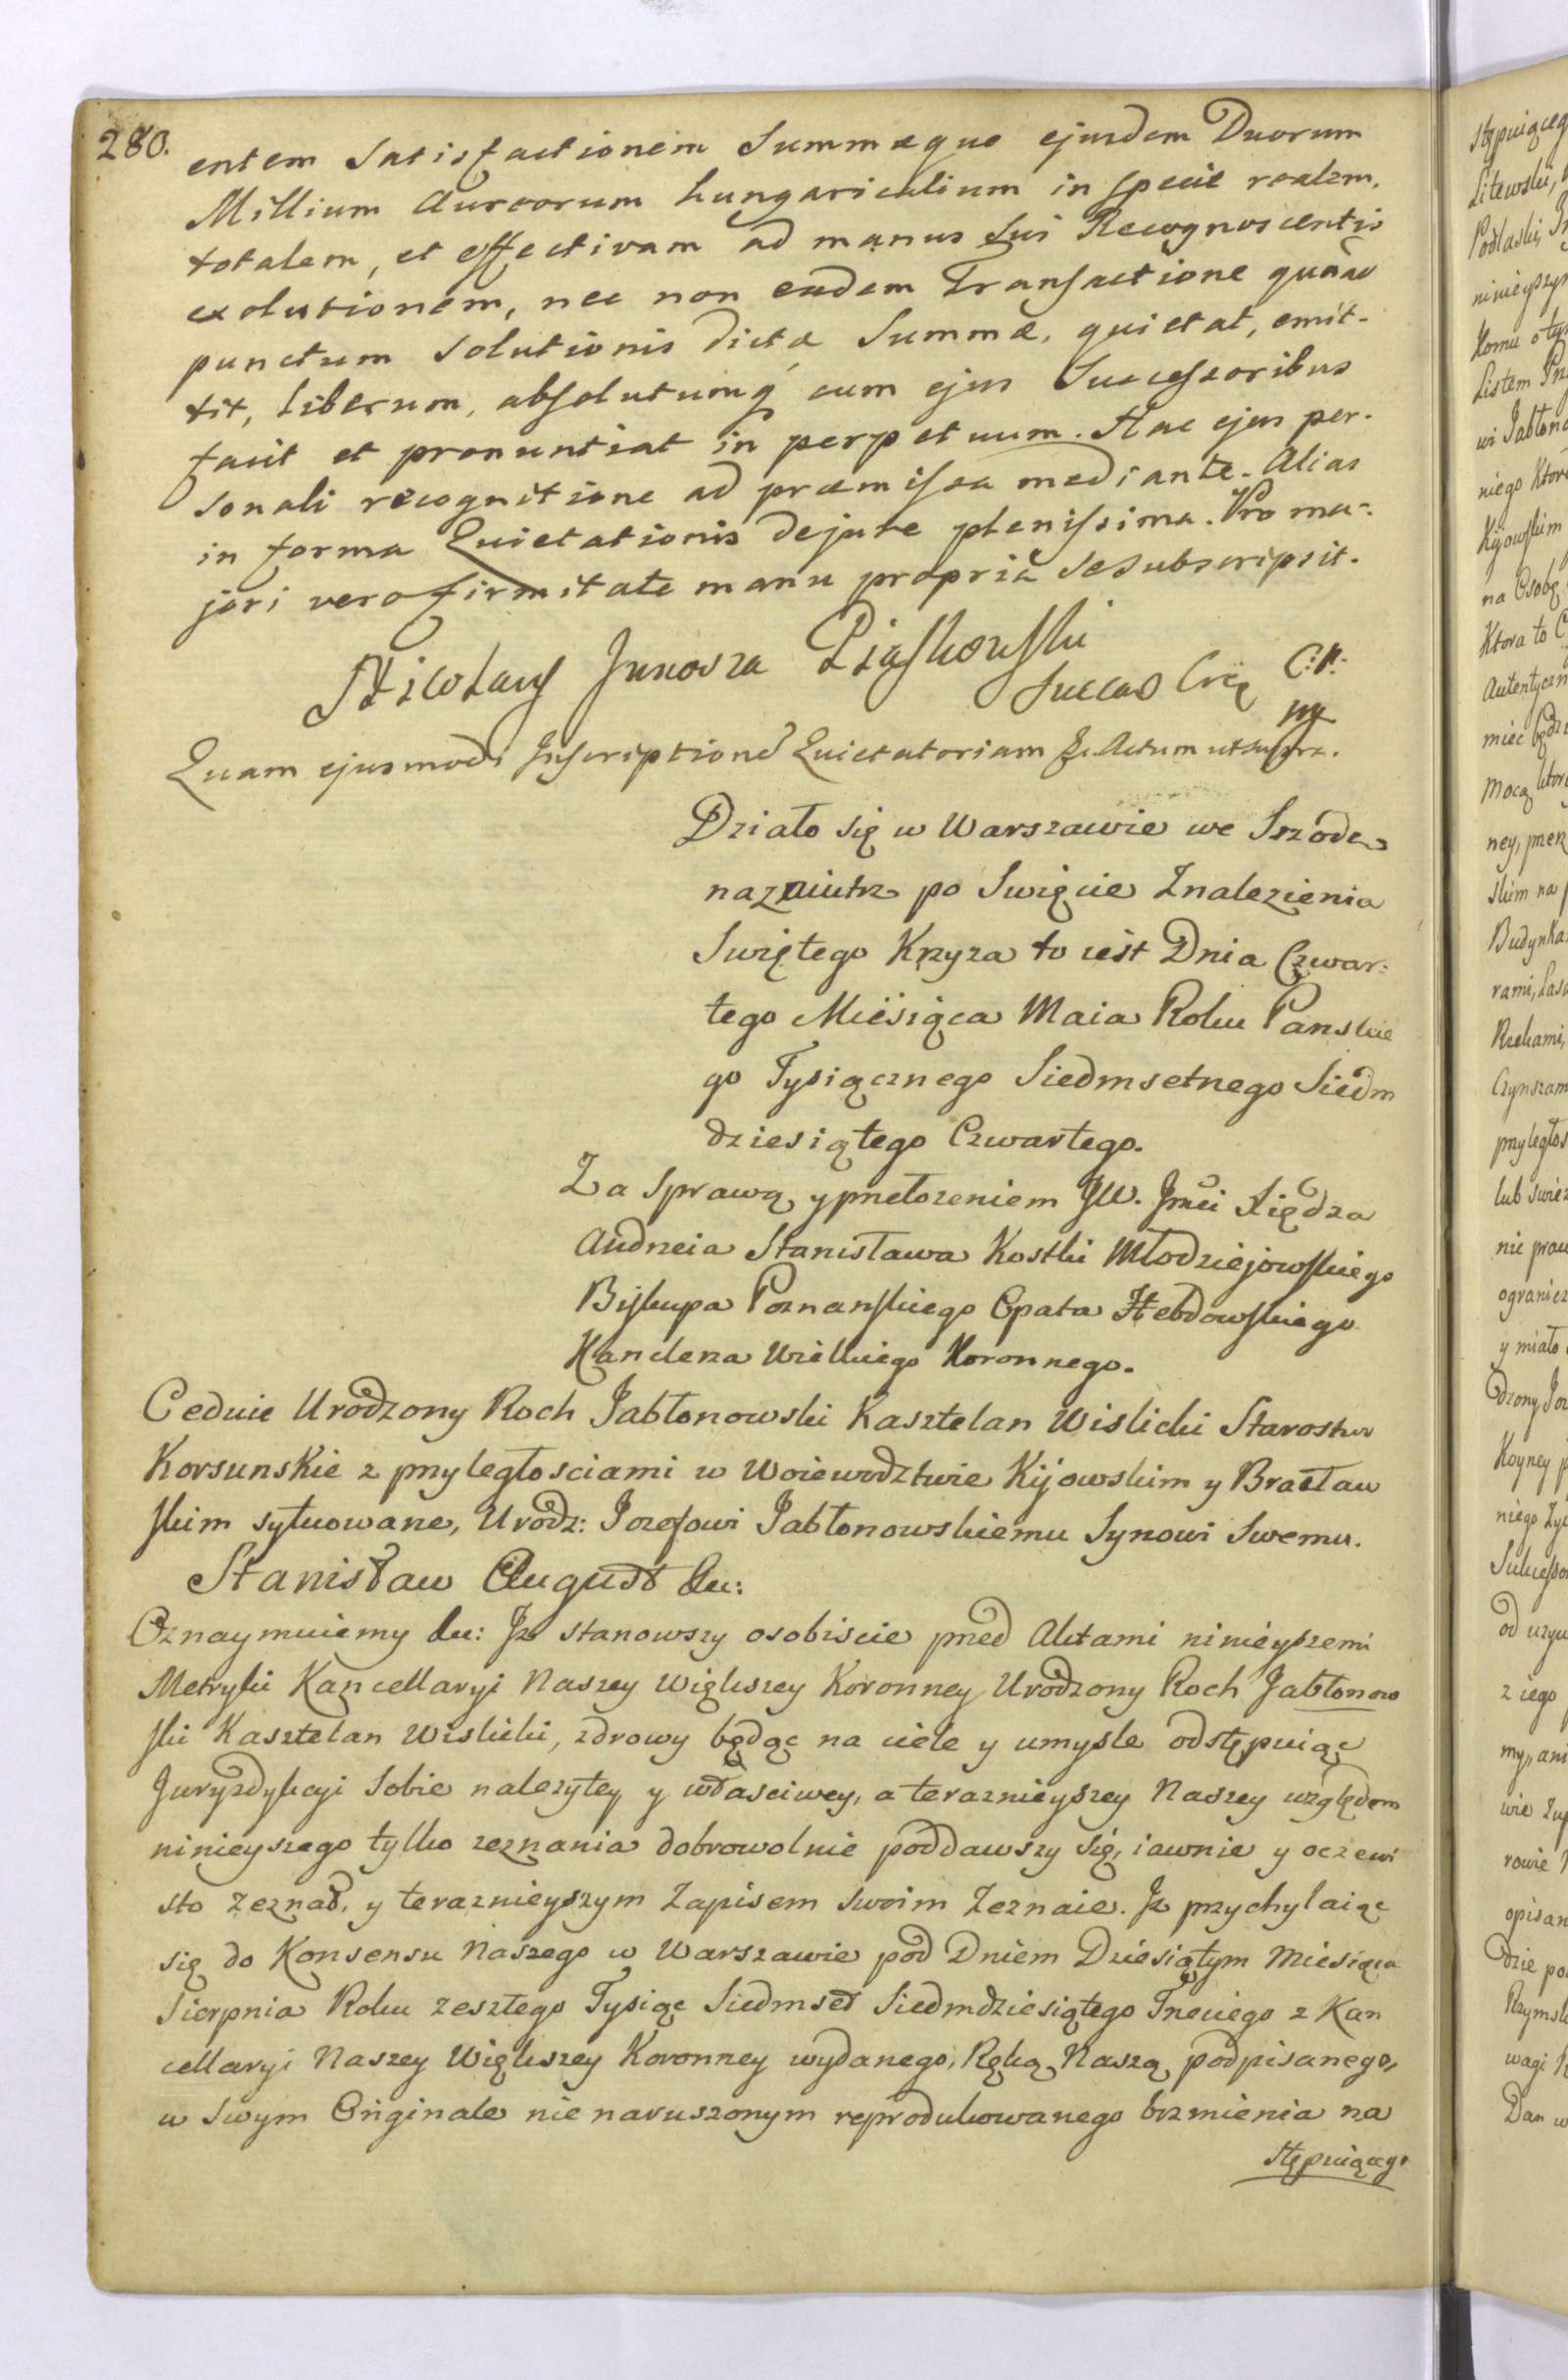 280.
entem Satisfactionem Summæque ejusdem Duorum
Millium Aureorum hungaricalium in specie realem,
totalem, et effectivam ad manus Sui Recognoscentis
exolutionem, nec non eadem Transactione quoad
punctum Solutionis dictæ Summæ, quietat, emit-
tit, liberum, absolutumq cum ejus Successoribus
facit et pronuntiat in perpetuum. Hac ejus per-
sonali recognitione ad præmissa mediante. Alias
in forma Quietationis dejure plenissima. Pro ma-
jori vero firmitate manu propria se subscripsit.
Nicolaus Junosza Piaskowski
Succ Crę C:K:
mp
Quam ejusmodi Inscriptione Quietatoriam &c. Actum ut supra.
Działo się w Warszawie we Srzode
nazaiutrz po Swięcie Znalezienia
Swiętego Krzyza to iest Dnia Czwar:
tego Miesiąca Maia Roku Panskie
go Tysiącznego Siedmsetnego Siedm
dziesiątego Czwartego.
Za Sprawą y przełozeniem JW. Jmci Xiędza
Andrzeia Stanisława Kostki Młodziejowskiego
Biskupa Poznanskiego Opata Hebdowskiego
Kanclerza Wielkiego Koronnego.
Ceduie Urodzony Roch Jabłonowski Kasztelan Wislicki Starostwo
Korsunskie z przyległosciami w Woiewodztwie Kijowskim y Bracław
skim sytuowane, Urodz: Jozefowi Jabłonowskiemu Synowi Swemu.
Stanisław August &c:
Oznaymuiemy &c: Jż stanowszy osobiscie przed Aktami ninieyszemi
Metryki Kancellaryi Naszey Większey Koronney Urodzony Roch Jabłonow
ski Kasztelan Wislicki, zdrowy będąc na ciele y umysle odstępuiąc
Juryzdykcyi Sobie nalezytey y własciwey, a terazniejszey Naszey względem
ninieyszego tylko zeznania dobrowolnie poddawszy się, iawnie y oczewi
sto zeznał, y terazniejszym Zapisem swoim Zeznaie. Jż przychylaiąc
się do Konsensu Naszego w Warszawie pod Dniem Dziesiątym Miesiąca
Sierpnia Roku zeszłego Tysiąc Siedmset Siedmdziesiątego Trzeciego z Kan
cellaryi Naszey Większey Koronney wydanego, Ręką Naszą podpisanego,
w Swym Originale nienaruszonym reprodukowanego brzmienia na
stępuiącego
stępuiąceg
Litewski,
Podlaski,
ninieyszym
Komu o tym
Listem
wi Jabłono
niego Ktore
Kijowskim
na Osobę
Ktora to
Autentyczn
miec będzie
Mocą ktore
ney, przez
skim na
Budynka
rami, Lasa
Rzekami,
Czynszam
przyległos
lub swiez
nie praw
ogranicz
y miało
dzony Joz
Koyney
niego Zyc
Sukcesso
od uzyw
z iego
my, ani
wie Zup
rowie
opisan
dzie po
Rzymsk
wagi
Dan w